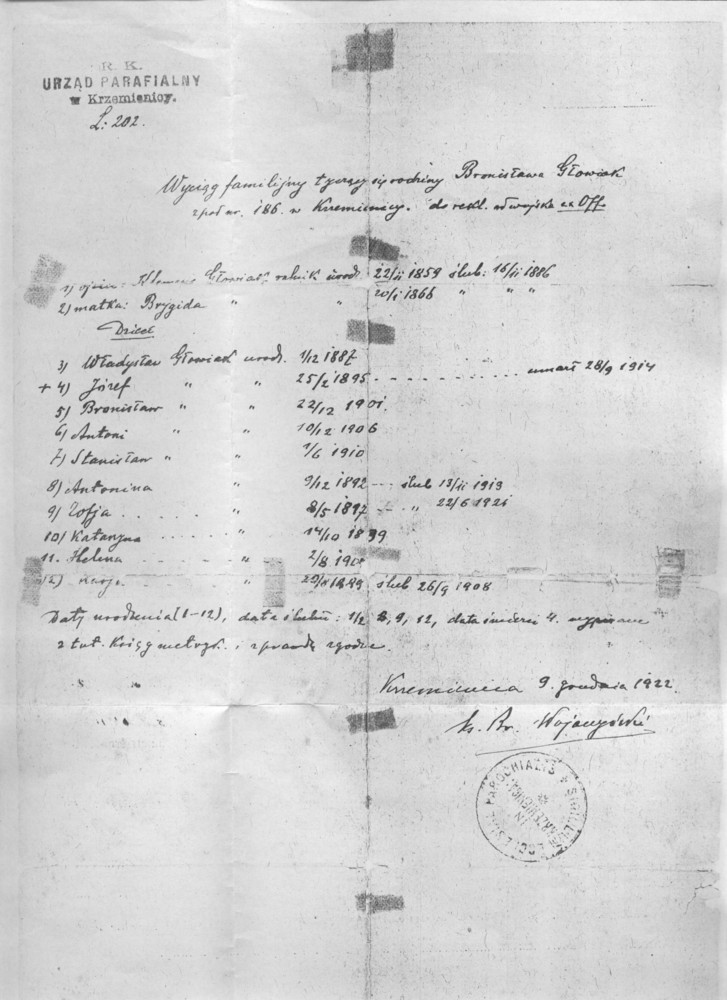 R. K.
URZĄD PARAFIALNY
w Krzemienicy.
L: 202.
Wyciąg familijny tyczący się rodziny Bronisława Głowiak
z pod nr. 186. w Krzemienicy. do rekl. od wojska ex Off.
1) ojciec: Klemens Głowiak, rolnik urodz. 22/11 1859 ślub: 16/11 1886
2) matka: Brygida " " 20/1 1866 " " "
Dzieci
3) Władysław Głowiak urodz. 1/12 1887
+ 4) Józef " " 25/2 1895 - - - - - - - - - umarł 28/9 1914
5) Bronisław " " 22/12 1901.
6) Antoni " " 10/12 1906
7) Stanisław " " 1/6 1910
8) Antonina " 9/12 1892 - - - ślub 13/11 1913
9) Zofja . . . . . . " 8/5 1897 - - - " 22/6 1921
10) Katarzyna - - - - - " 14/10 1899
11. Helena - - - - - " 2/8
12) - - - - - " ślub 26/9 1908
Daty urodzenia (1-12), data ślubu: 1/2 8, 9, 12, data śmierci 4. wypisane
z tut. Ksiąg metryk. i zgodne.
Krzemienica 9. grudnia 1922.
ks. Br. Wojaczyński
SIGILLUM ECCLESIAE PAROCHIALIS
IN